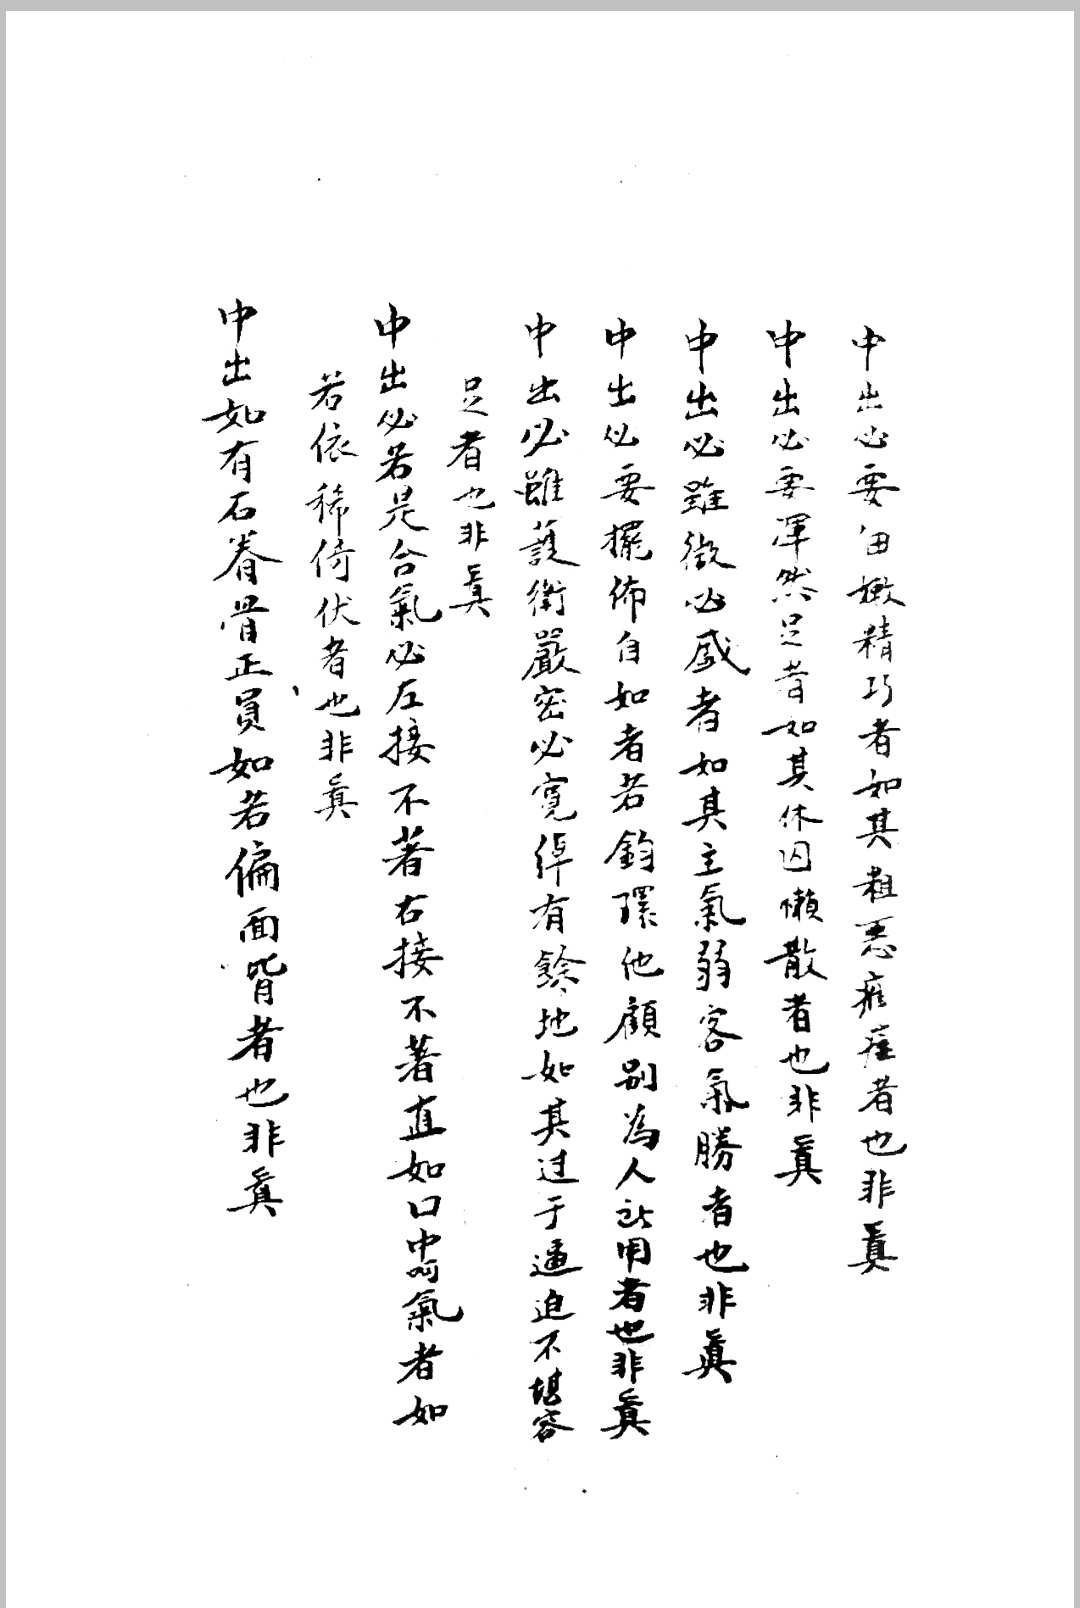 中出必要細嫩精巧者如其粗惡瘫痖者也非眞
中出必要渾然足者如其休囚懶散者也非眞
中出必雖微必盛者如其主氣弱客氣勝者也非眞
中出必要擺佈自如者若鈎環他顧别為人所用者也非眞
中出必雖護衛嚴密必寛綽有餘地如其过于逼迫不堪容
足者也非眞
中出必若是合氣必左接不著右接不著直如口中呵氣者如
若依稀倚伏者也非眞
中出如有石脊骨正員如若偏面背者也非眞